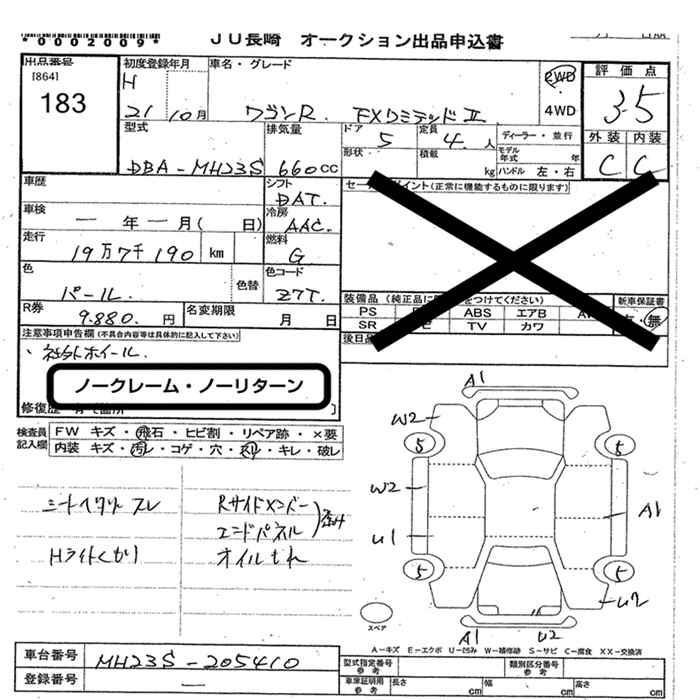 *0002009*
JU長崎 オークション出品申込書
出品番号
[864]
183
初度登録年月
H
21 10月
車名・グレード
ワゴンR. FXリミテッドⅡ
2WD
4WD
評価点
3.5
外装 内装
C C
型式
DBA-MH23S
排気量
660cc
ドア
5
形状
定員
4. 人
積載
kg
ディーラー・並行
モデル年式 年
ハンドル 左・右
車歴
車検
— 年 — 月( 日)
走行
19万7千190 km
色
パール.
色替
シフト
DAT.
冷房
AAC.
燃料
G
色コード
Z7T.
セールスポイント(正常に機能するものに限ります)
R券
9.880. 円
名変期限
月 日
装備品(純正品に をつけてください)
PS ABS エアB
SR TV カワ
新車保証書
有・無
後日品
注意事項申告欄(不具合内容等は具体的に記入して下さい)
、社外ホイール.
ノークレーム・ノーリターン
修復歴
検査員記入欄
FW キズ・飛石・ヒビ割・リペア跡・×要
内装 キズ・汚れ・コゲ・穴・スレ・キレ・破レ
シートヘタリ スレ
Hライトくもり
Rサイドメンバー
エンドパネル)歪み
オイルもれ
A1
W2
5 5
W2
A1
U1
5 5
U2
A1 U2
スペア
A-キズ E-エクボ U-凹み W-補修跡 S-サビ C-腐食 XX-交換済
車台番号
MH23S-205410
登録番号
—
型式指定番号
参考
類別区分番号
参考
車庫証明用
参考
長さ cm
幅 cm
高さ cm